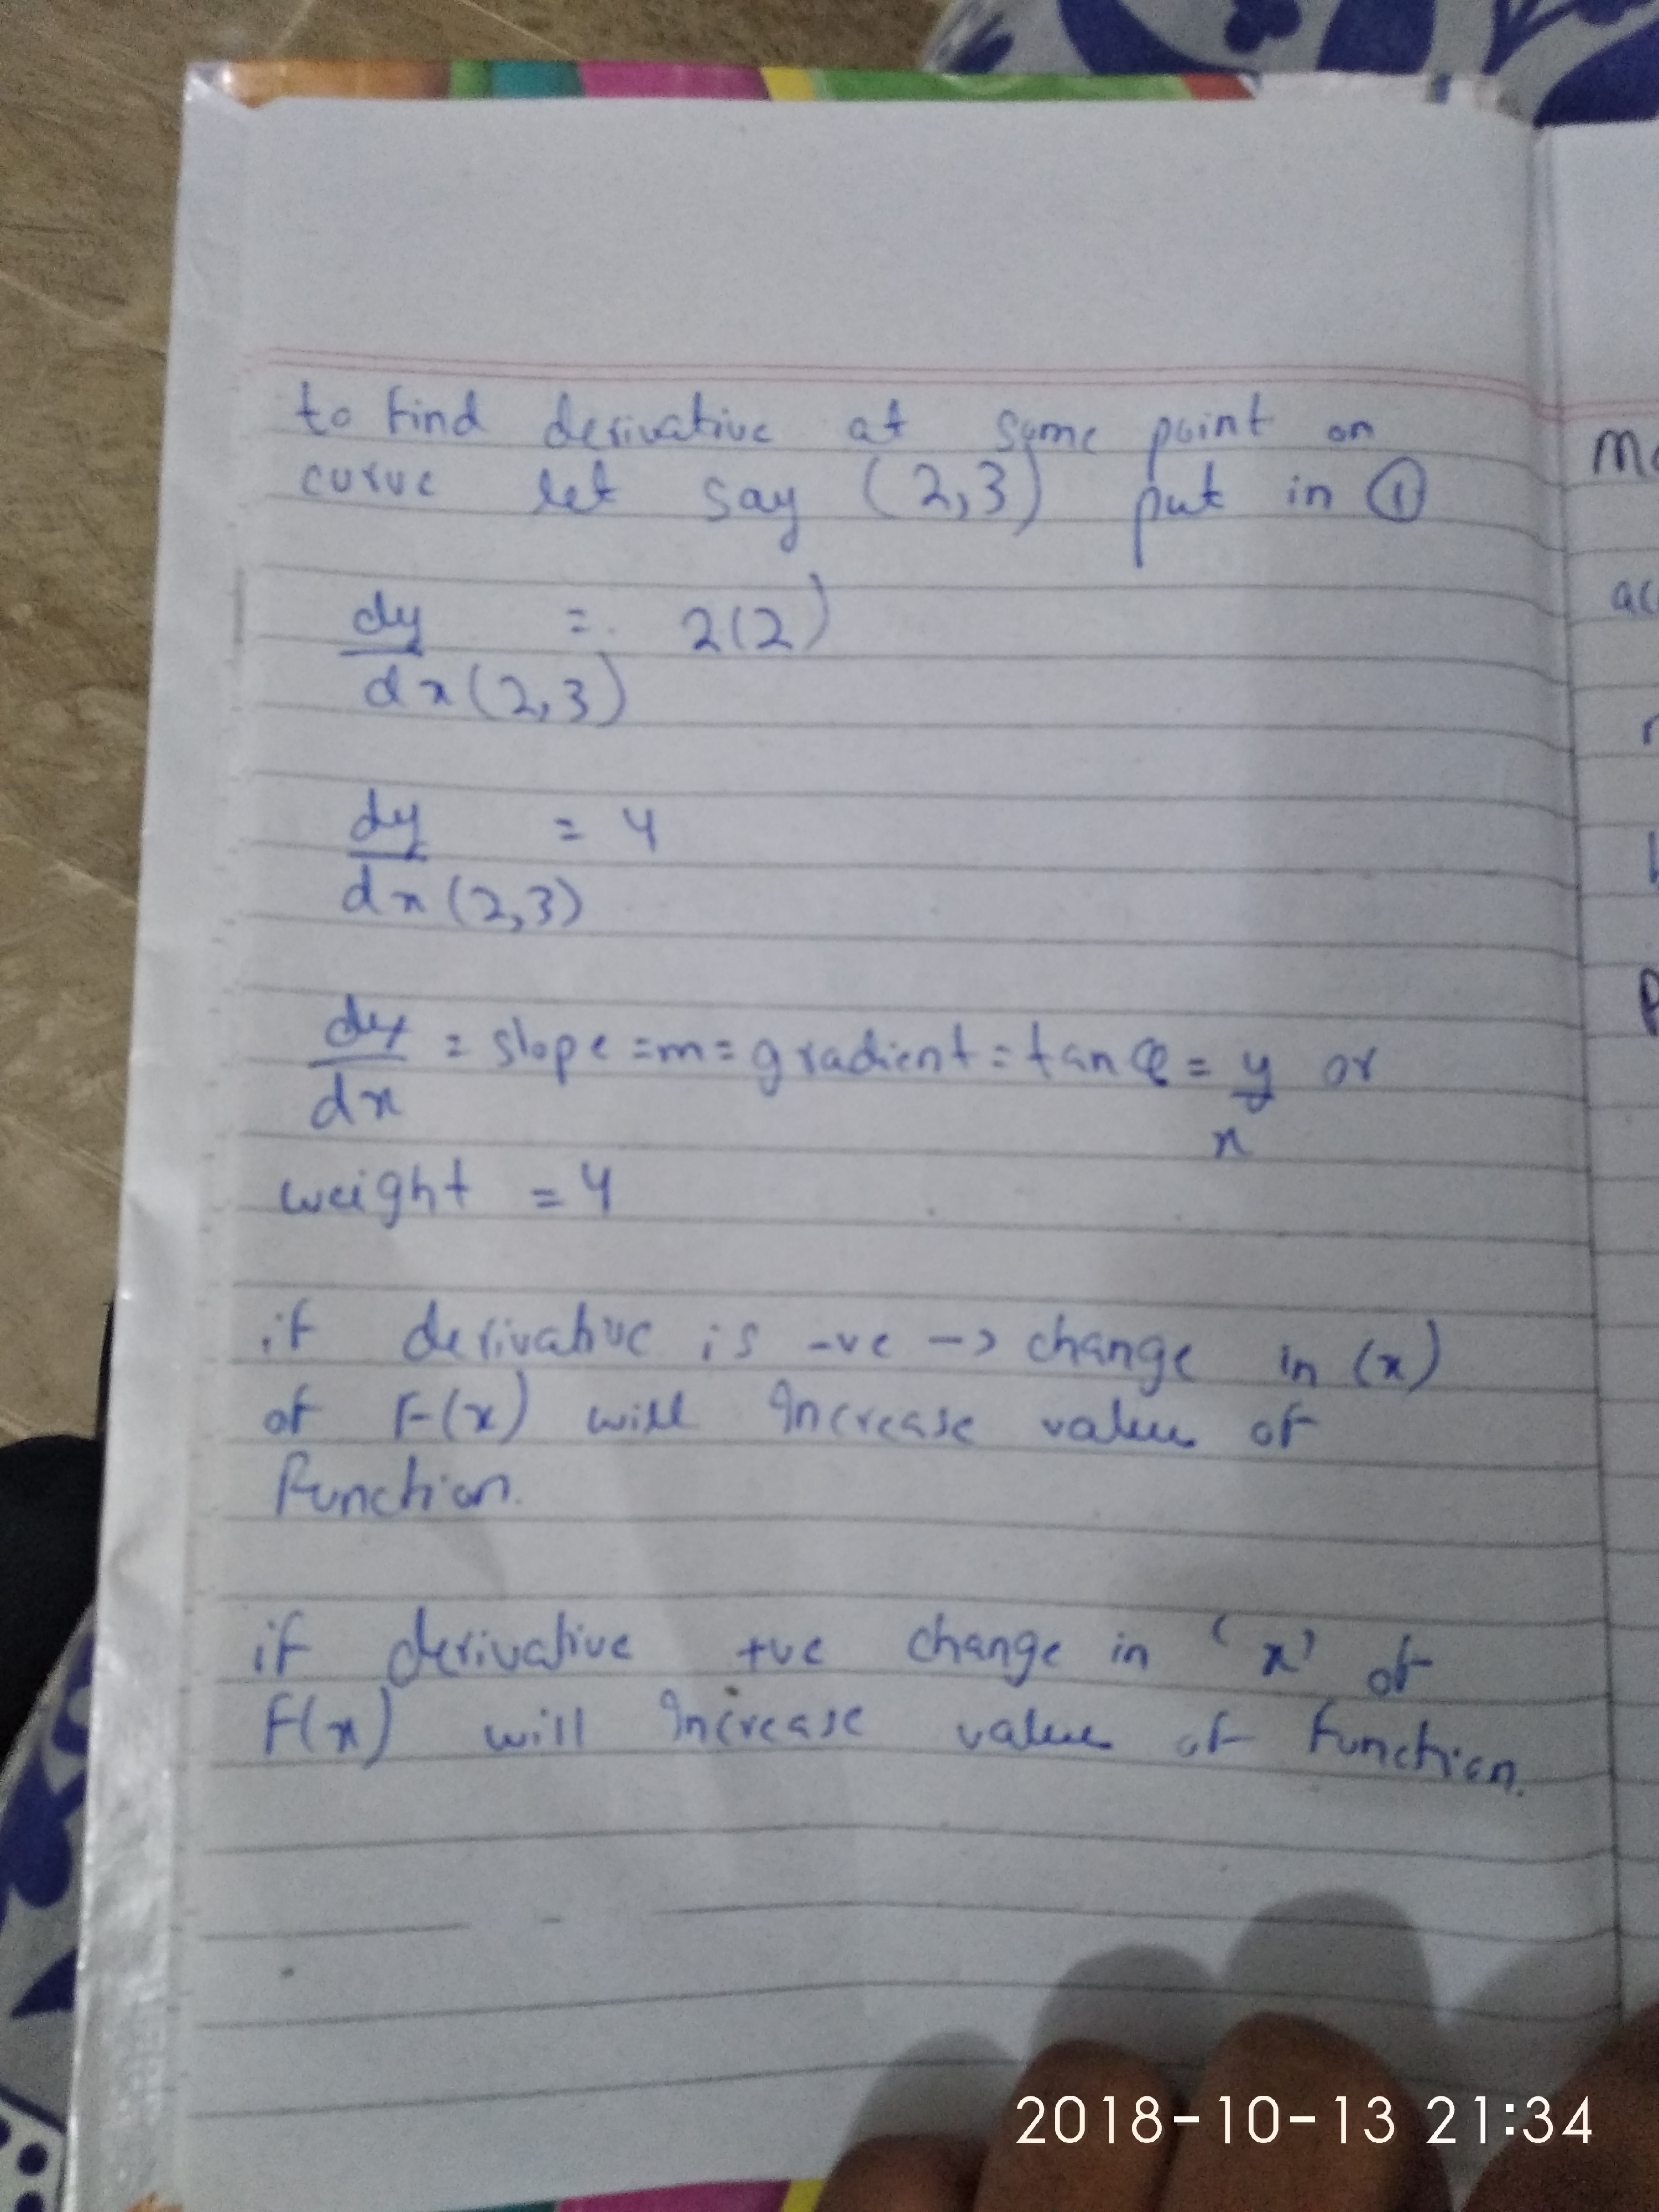 to find derivative at some point on
curve let say (2,3) put in ①
dy = 2(2)
dx (2,3)
dy = 4
dx (2,3)
dy = slope = m = gradient = tan φ = y or
dx x
weight = 4
if derivative is -ve -> change in (x)
of F(x) will Increase value of
Function.
if derivative +ve change in 'x' of
F(x) will Increase value of function.
2018-10-13 21:34